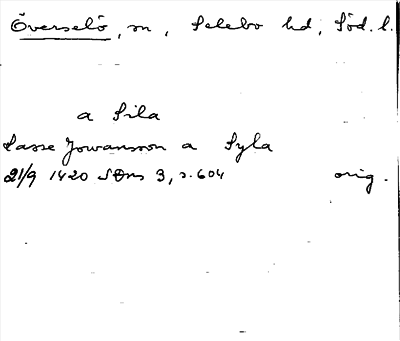 Överselö, sn, Selebo hd, Söd. l.
a Sila
Lasse Jowansson a Syla
21/9 1420 SDns 3, s. 604 orig.